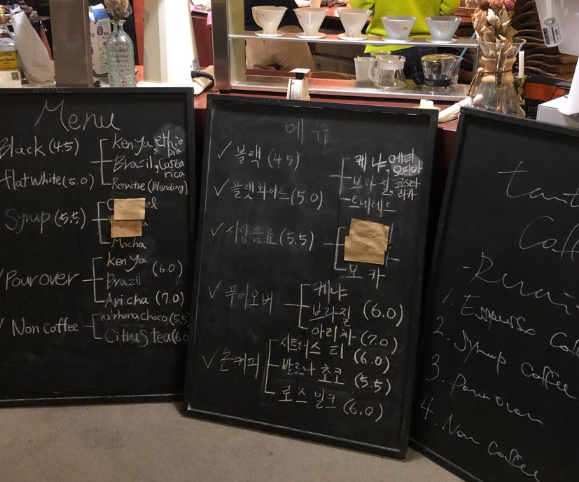 Menu
Black (4.5)
Kenya, Ethio
pia
Brazil, Costa
rica
flat white (5.0)
(Blending)
Syrup (5.5)
Mocha
Pour over
Kenya
(6.0)
Brazil
Aricha (7.0)
Non Coffee
choco (5.5)
Citrus Tea (6.0
메뉴
블랙 (4.5)
케냐, 에티
오피아
브라질, 코스타
리카
플랫화이트 (5.0)
시럽음료 (5.5)
모카
푸어오버
케냐
브라질 (6.0)
아리차 (7.0)
논커피
시트러스 티
(6.0)
발로나 초코
(5.5)
로스 밀크 (6.0)
1. Espresso Cof
2. Syrup Coffee
3. Pour over
4. Non Coffee